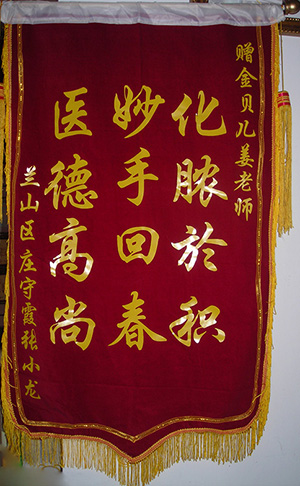 赠金贝儿姜老师
化脓於积
妙手回春
医德高尚
兰山区庄守霞张小龙